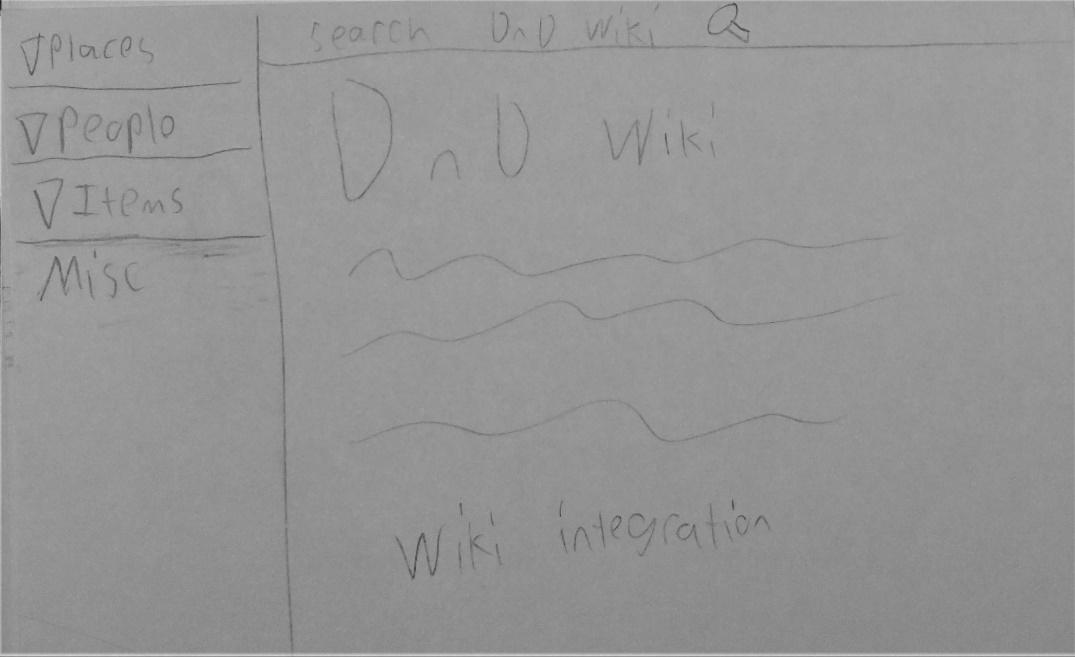 Places
People
Items
Misc
search DnD Wiki
DnD Wiki
Wiki integration